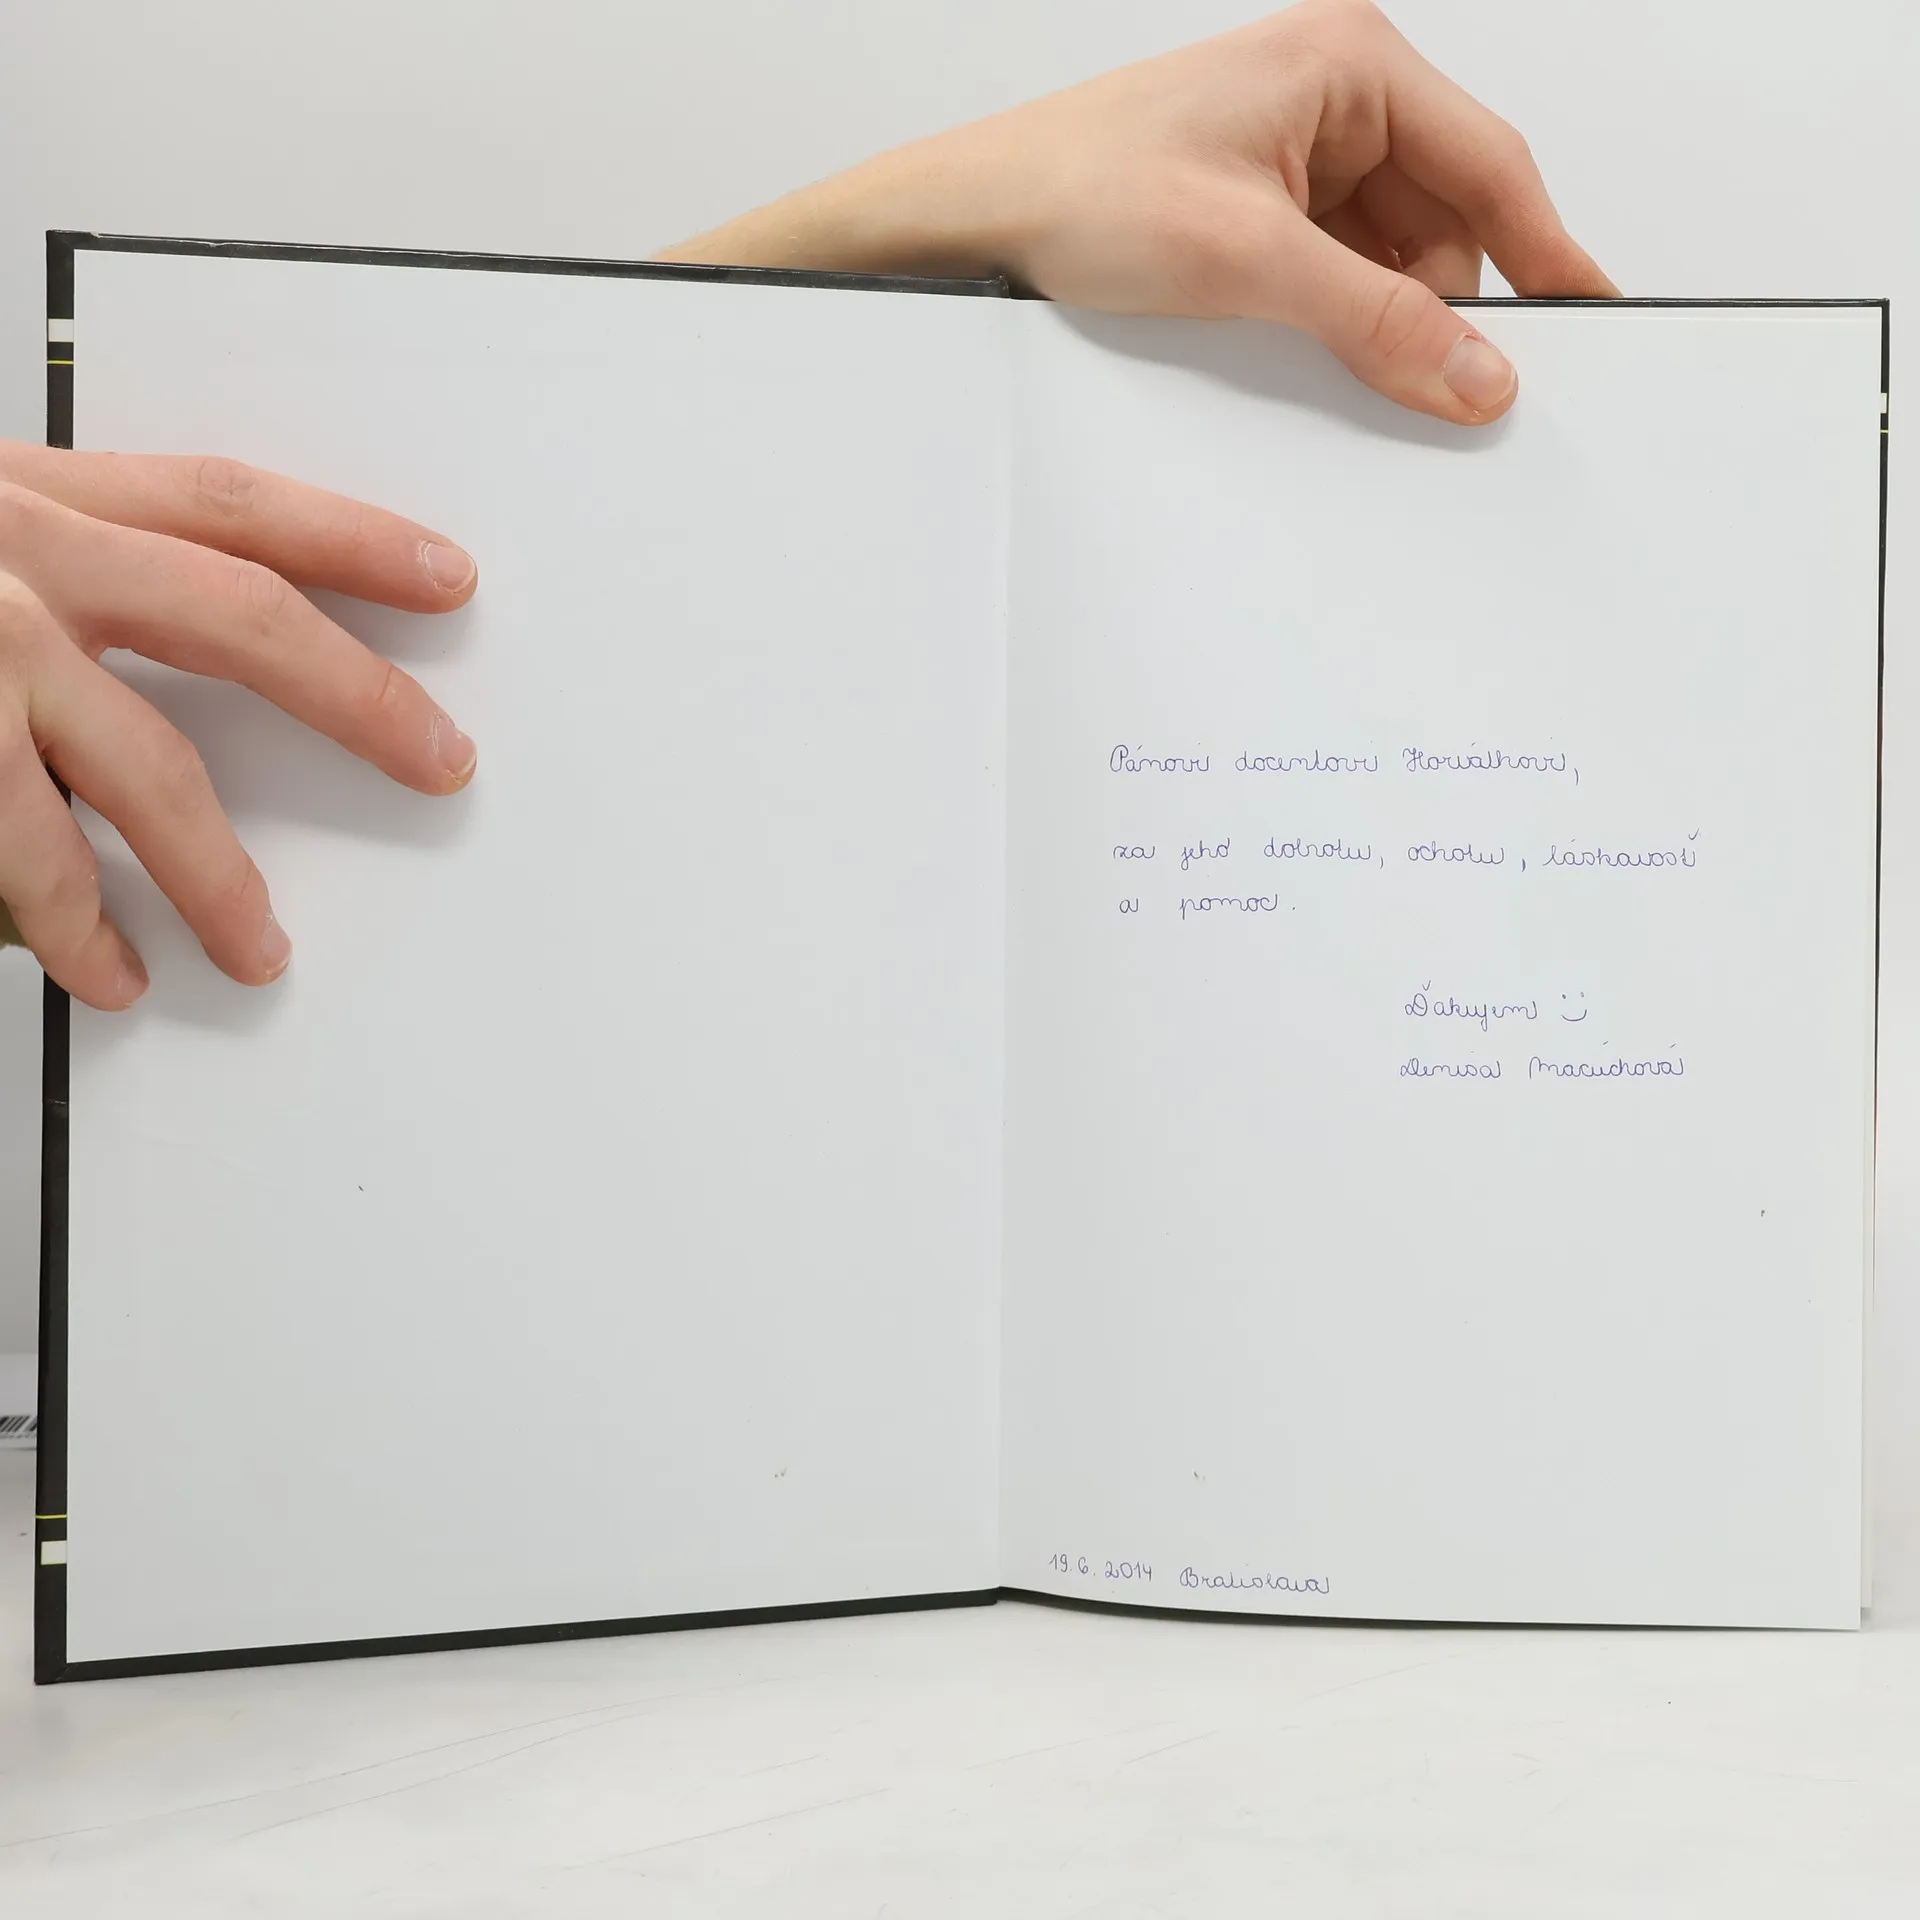 Pánovi docentovi Horváthovi,
za jeho dobrotu, ochotu, láskavosť
a pomoc.
Ďakujem :)
Denisa Macúchová
19.6.2014 Bratislava